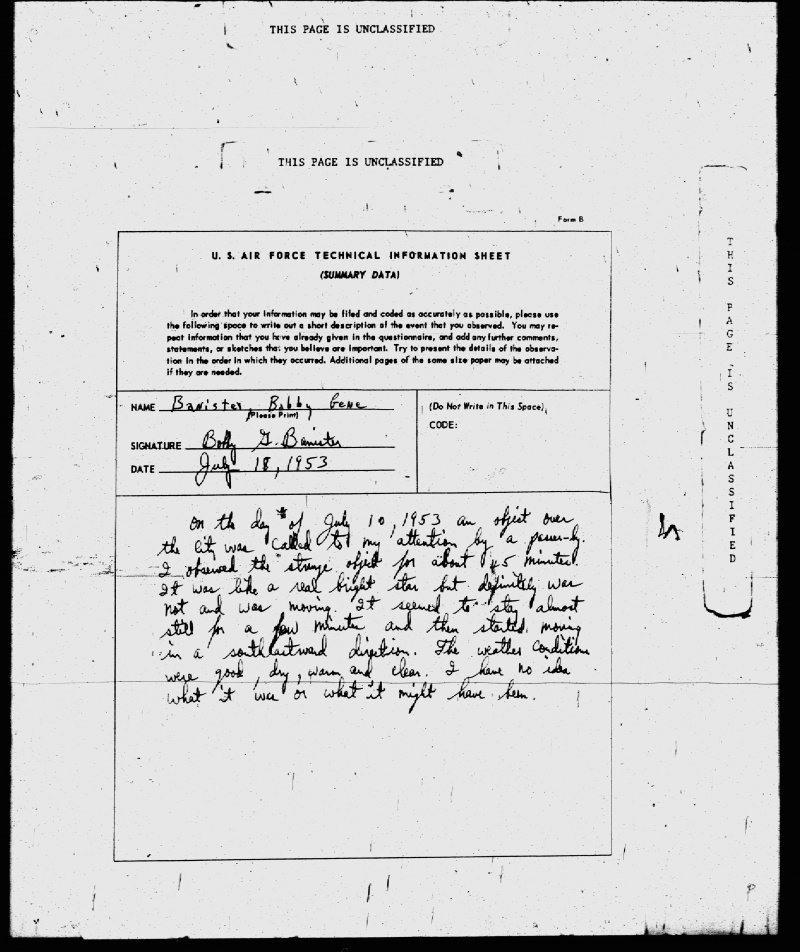 THIS PAGE IS UNCLASSIFIED
THIS PAGE IS UNCLASSIFIED
Form B
U. S. AIR FORCE TECHNICAL INFORMATION SHEET
(SUMMARY DATA)
In order that your information may be filed and coded as accurately as possible, please use
the following space to write out a short description of the event that you observed. You may re-
peat information that you have already given in the questionnaire, and add any further comments,
statements, or sketches that you believe are important. Try to present the details of the observa-
tion in the order in which they occurred. Additional pages of the same size paper may be attached
if they are needed.
NAME Banister, Bobby Gene
(Please Print)
SIGNATURE Bobby G. Banister
DATE July 18, 1953
(Do Not Write in This Space)
CODE:
On the day of July 10, 1953 an object over
the city was called to my attention by a passer-by.
I observed the strange object for about 45 minutes.
It was like a real bright star but definitely was
not and was moving. It seemed to stay almost
still for a few minutes and then started moving
in a southeastward direction. The weather conditions
were good, dry, warm and clear. I have no idea
what it was or what it might have been.
THIS PAGE IS UNCLASSIFIED